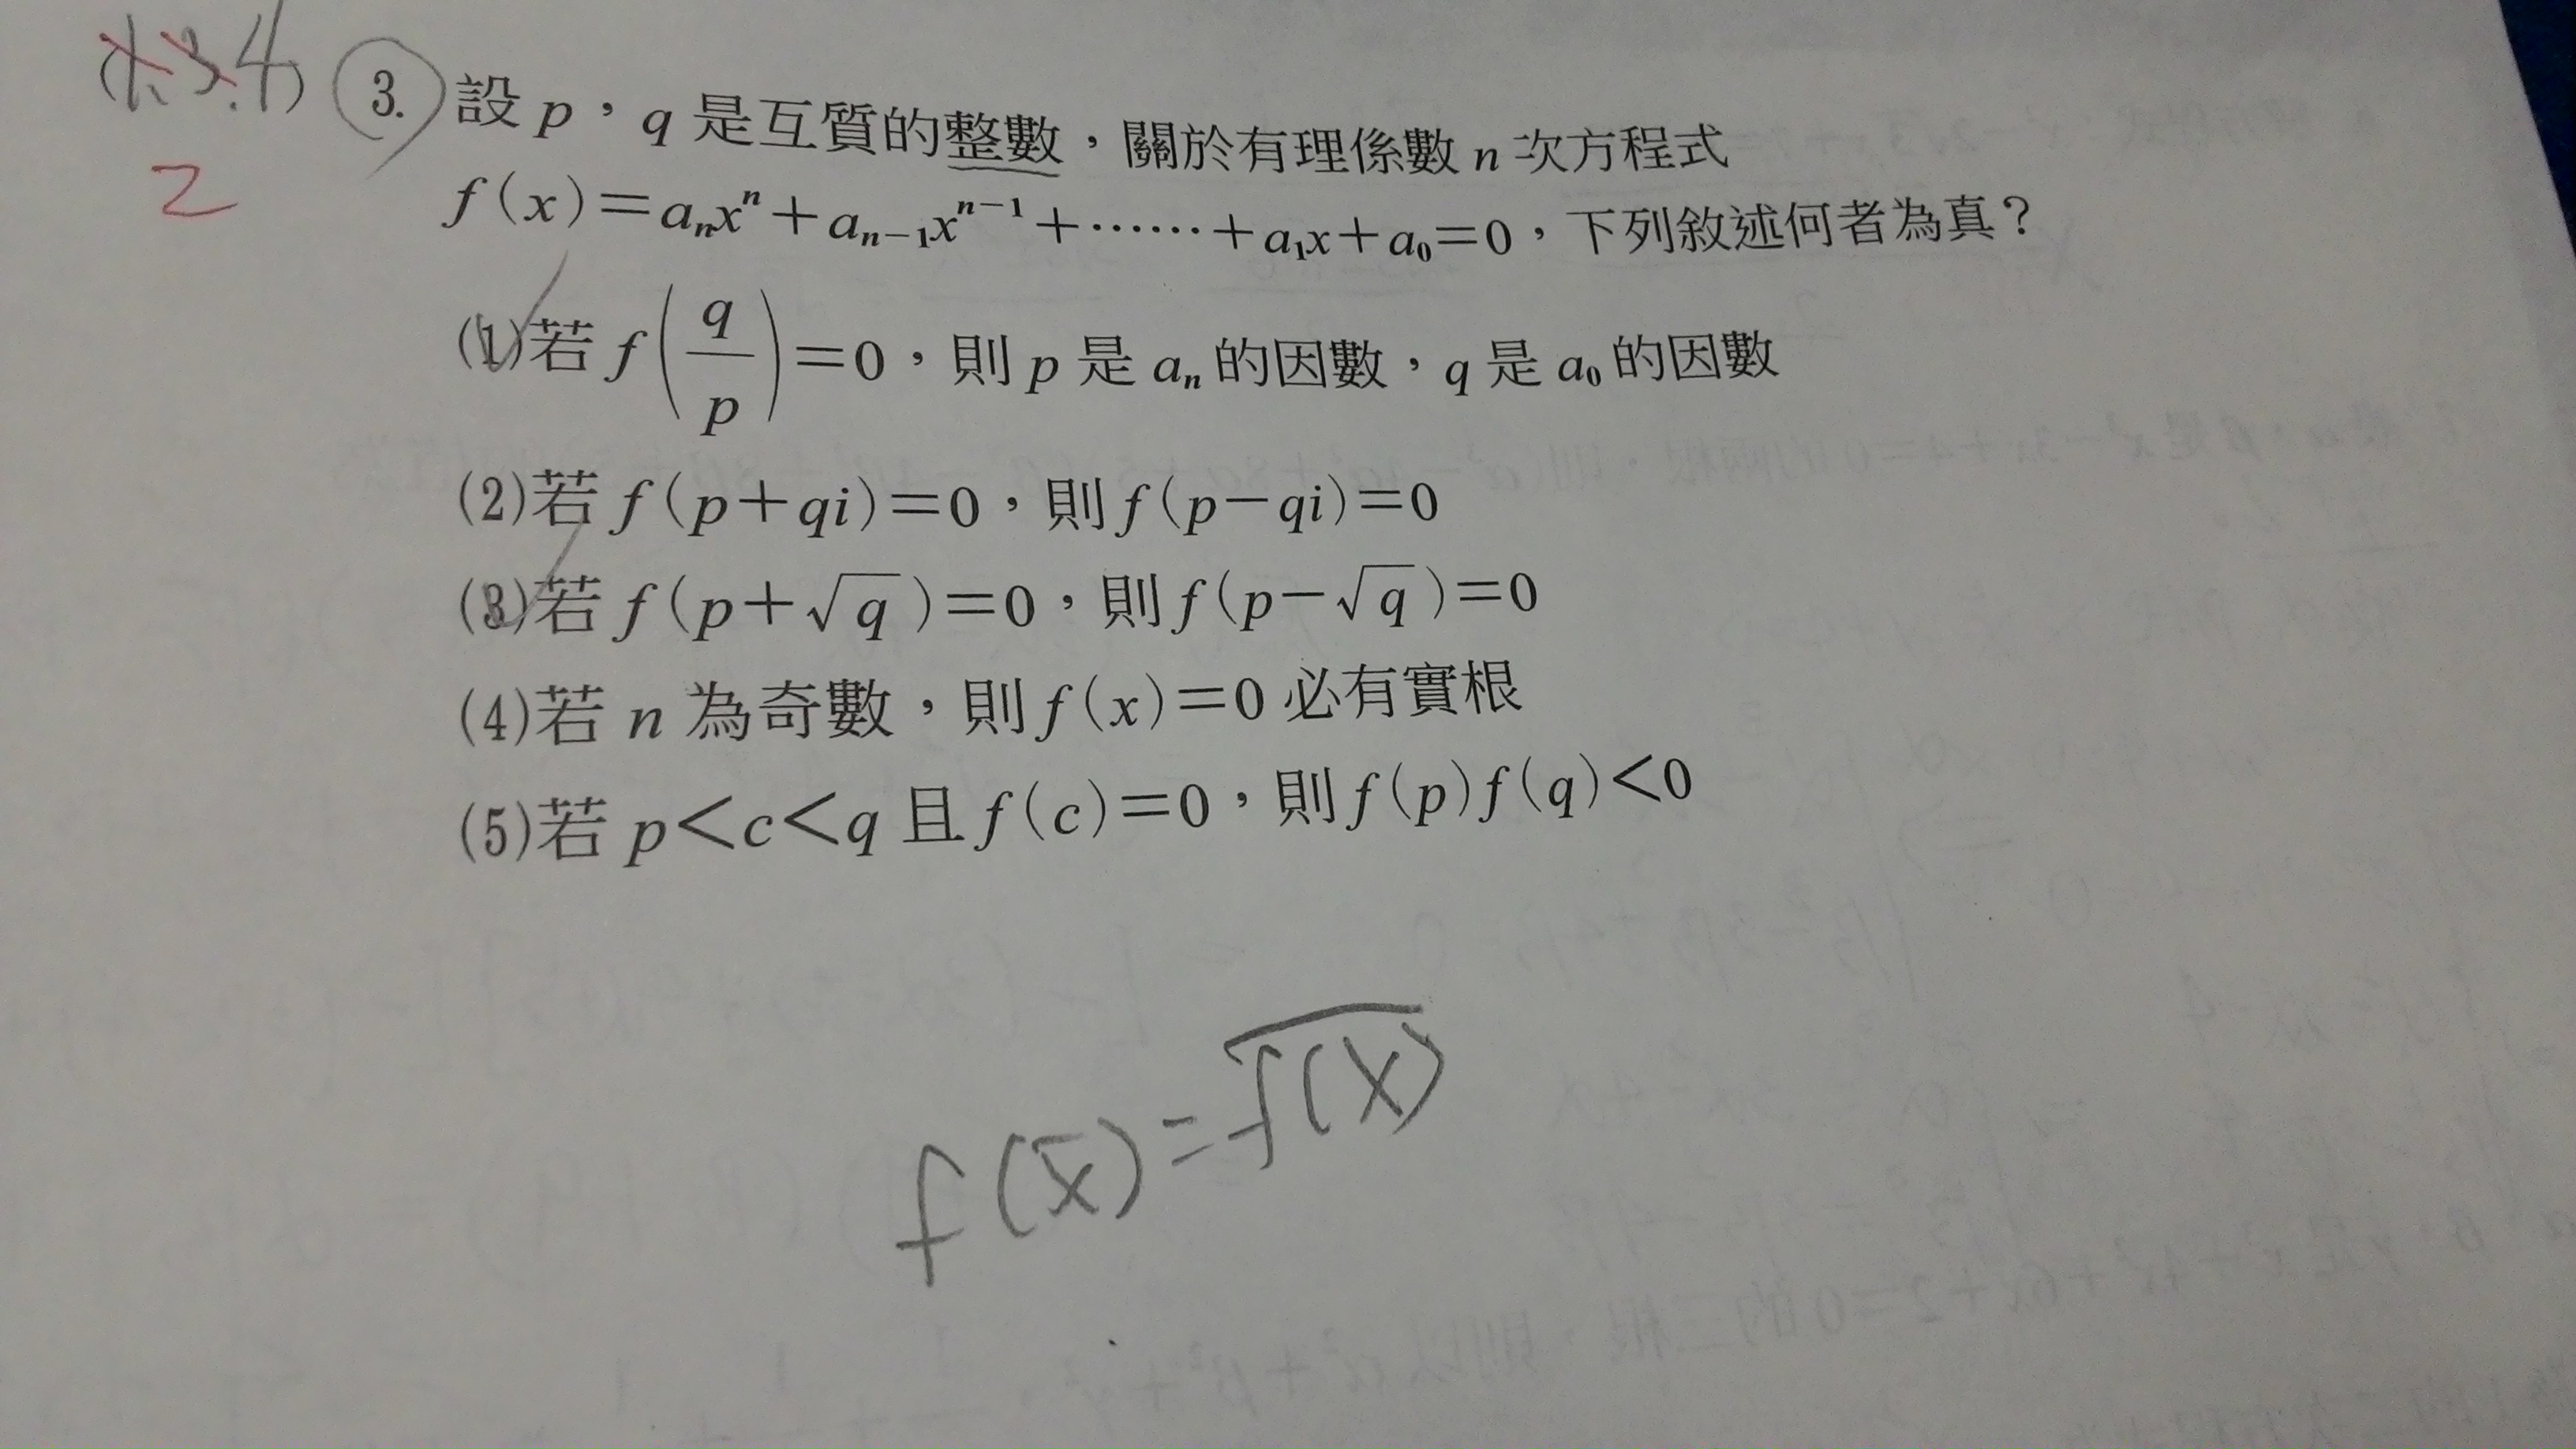 (1.3.4)
2
3. 設 p，q 是互質的整數，關於有理係數 n 次方程式
f(x)=aₙxⁿ+aₙ₋₁xⁿ⁻¹+⋯⋯+a₁x+a₀=0，下列敘述何者為真？
(1)若 f(q/p)=0，則 p 是 aₙ 的因數，q 是 a₀ 的因數
(2)若 f(p+qi)=0，則 f(p−qi)=0
(3)若 f(p+√q)=0，則 f(p−√q)=0
(4)若 n 為奇數，則 f(x)=0 必有實根
(5)若 p<c<q 且 f(c)=0，則 f(p)f(q)<0
f(x̄)=\overline{f(x)}